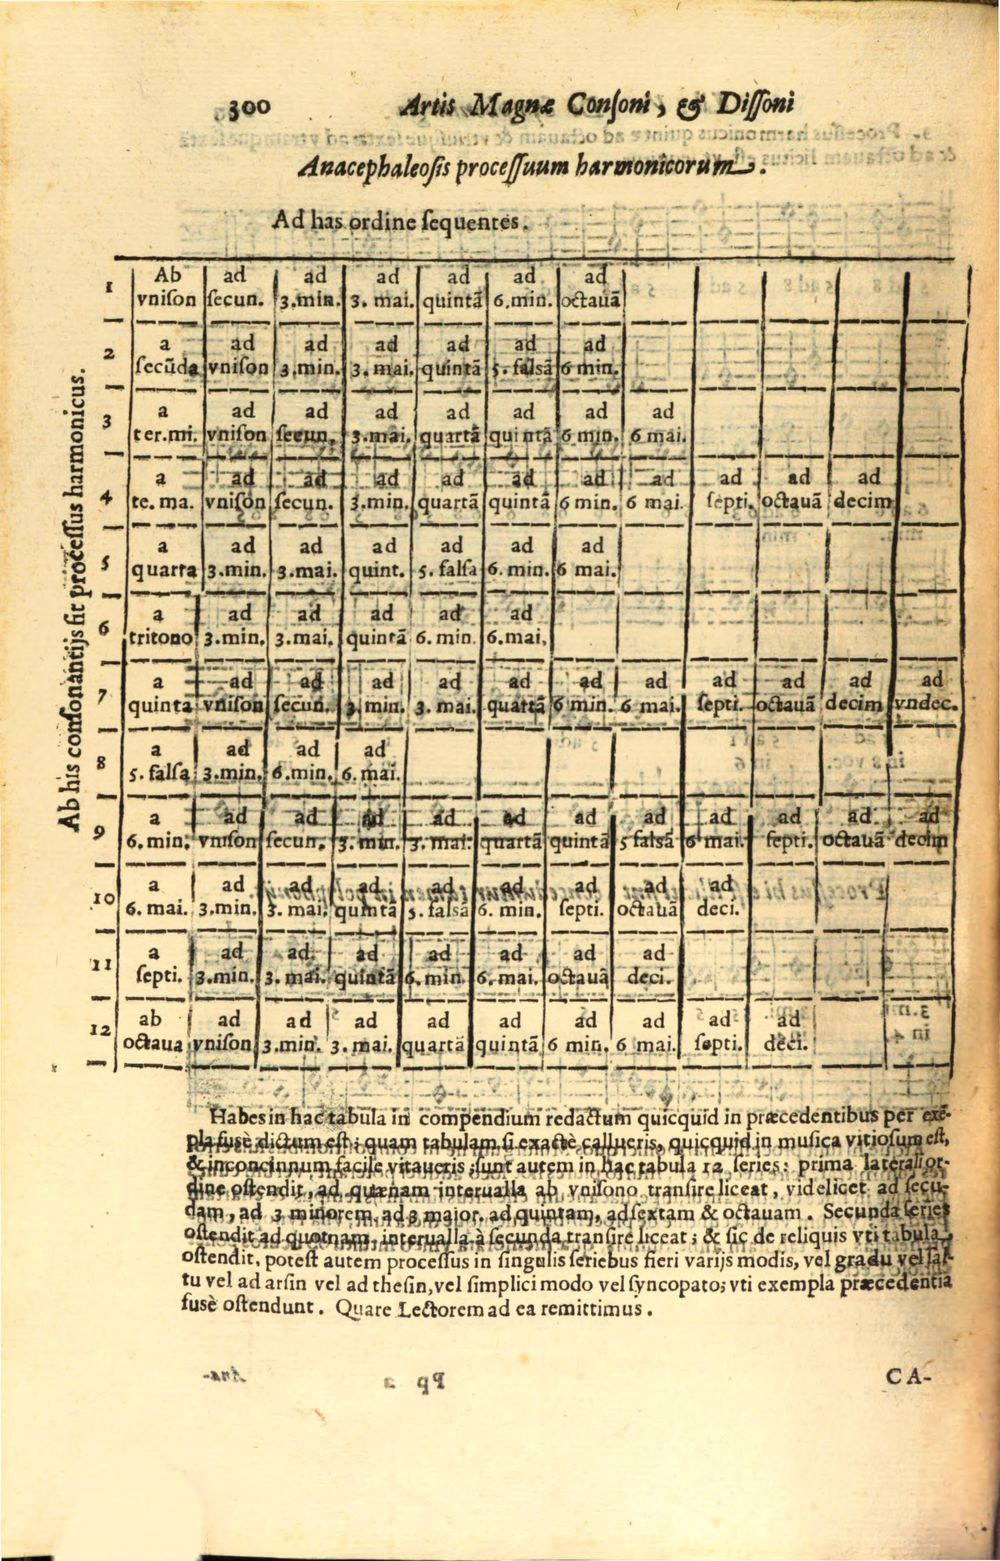 300 Artis Magnæ Conſoni, & Diſſoni
Anacephaleoſis proceſſuum harmonicorum.
Ad has ordine ſequentes.
Ab his conſonantijs fit proceſſus harmonicus.
1 Ab ad ad ad ad ad ad
vniſon ſecun. 3.min. 3. mai. quintã 6.min. octauã
2 a ad ad ad ad ad ad
ſecũda vniſon 3.min. 3. mai. quintã 5. falsã 6 min.
3 a ad ad ad ad ad ad ad
ter.mi. vniſon ſecun. 3.mai. quartã quintã 6 min. 6 mai.
4 a ad ad ad ad ad ad ad ad ad ad
te. ma. vniſon ſecun. 3.min. quartã quintã 6 min. 6 mai. ſepti. octauã decim
5 a ad ad ad ad ad ad
quarta 3.min. 3.mai. quint. 5. falſa 6. min. 6 mai.
6 a ad ad ad ad ad
tritono 3.min. 3.mai. quintã 6.min. 6.mai.
7 a ad ad ad ad ad ad ad ad ad ad ad
quinta vniſon ſecun. 3. min. 3. mai. quartã 6 min. 6 mai. ſepti. octauã decim vndec.
8 a ad ad ad
5. falſa 3.min. 6.min. 6.mai.
9 a ad ad ad ad ad ad ad ad ad ad ad
6. min. vniſon ſecun. 3. min. 3. mai. quartã quintã 5 falsã 6 mai. ſepti. octauã decim
10 a ad ad ad ad ad ad ad ad
6. mai. 3.min. 3. mai. quintã 5. falsã 6. min. ſepti. octauã deci.
11 a ad ad ad ad ad ad ad
ſepti. 3.min. 3. mai. quintã 6. min. 6. mai. octauã deci.
12 ab ad ad ad ad ad ad ad ad ad
octaua vniſon 3.min. 3. mai. quartã quintã 6 min. 6 mai. ſepti. deci.
Habes in hac tabula in compendium redactum quicquid in præcedentibus per exẽ-
pla fusè dictum eſt; quam tabulam ſi exactè callueris, quicquid in muſica vitioſum eſt,
& inconcinnum facile vitaueris; ſunt autem in hac tabula 12 ſeries: prima laterali or-
dine oſtendit, ad quænam interualla ab vniſono tranſire liceat, videlicet ad ſecũ-
dam, ad 3 minorem, ad 3 maior, ad quintam, ad ſextam & octauam. Secunda ſeries
oſtendit ad quotnam interualla à ſecunda tranſire liceat; & ſic de reliquis vti tabula
oſtendit, poteſt autem proceſſus in ſingulis ſeriebus fieri varijs modis, vel gradu vel ſal-
tu vel ad arſin vel ad theſin, vel ſimplici modo vel ſyncopato; vti exempla præcedentia
fusè oſtendunt. Quare Lectorem ad ea remittimus.
CA-